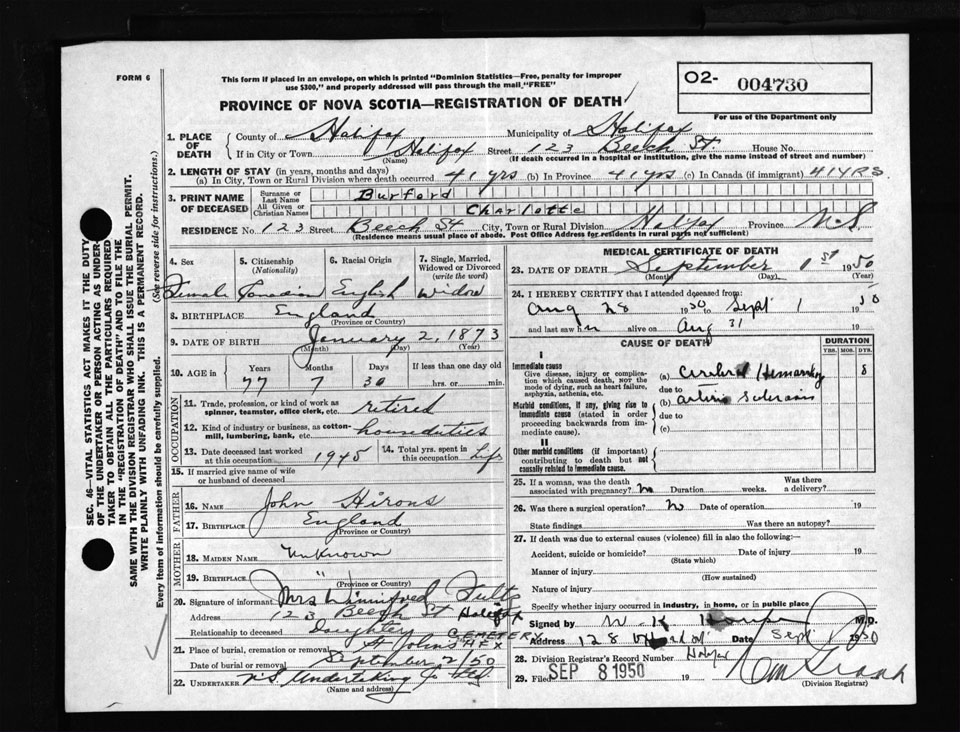 FORM 6
This form if placed in an envelope, on which is printed "Dominion Statistics—Free, penalty for improper
use $300," and properly addressed will pass through the mail "FREE"
PROVINCE OF NOVA SCOTIA—REGISTRATION OF DEATH
O2- 004730
For use of the Department only
1. PLACE OF DEATH County of Halifax Municipality of Halifax
If in City or Town Halifax Street 123 Beech St House No.
(Name) (If death occurred in a hospital or institution, give the name instead of street and number)
2. LENGTH OF STAY (in years, months and days)
(a) In City, Town or Rural Division where death occurred 41 yrs (b) In Province 41 yrs (c) In Canada (if immigrant) 41 YRS.
3. PRINT NAME OF DECEASED Surname or Last Name Burford
All Given or Christian Names Charlotte
RESIDENCE No. 123 Street Beech St City, Town or Rural Division Halifax Province N.S.
(Residence means usual place of abode. Post Office Address for residents in rural parts not sufficient)
4. Sex 5. Citizenship (Nationality) 6. Racial Origin 7. Single, Married, Widowed or Divorced (write the word)
Female Canadian English Widow
8. BIRTHPLACE England
(Province or Country)
9. DATE OF BIRTH January 2, 1873
(Month) (Day) (Year)
10. AGE in Years Months Days If less than one day old
77 7 30 hrs. or min.
OCCUPATION
11. Trade, profession, or kind of work as spinner, teamster, office clerk, etc. retired
12. Kind of industry or business, as cotton-mill, lumbering, bank, etc.
13. Date deceased last worked at this occupation 1945 14. Total yrs. spent in this occupation Life
15. If married give name of wife or husband of deceased
FATHER
16. NAME John Hirons
17. BIRTHPLACE England
(Province or Country)
MOTHER
18. MAIDEN NAME Unknown
19. BIRTHPLACE "
(Province or Country)
20. Signature of informant Mrs Winnifred Fultz
Address 123 Beech St Halifax
Relationship to deceased Daughter
21. Place of burial, cremation or removal St Johns CEMETERY HFX
Date of burial or removal September 2/50
22. UNDERTAKER N.S. Undertaking Co Ltd.
(Name and address)
MEDICAL CERTIFICATE OF DEATH
23. DATE OF DEATH September 1st 1950
(Month) (Day) (Year)
24. I HEREBY CERTIFY that I attended deceased from:
Aug 28 1950 to Sept 1 1950
and last saw h alive on Aug 31 19
CAUSE OF DEATH DURATION
YRS. MOS. DYS.
I
Immediate cause
Give disease, injury or complication which caused death, not the mode of dying, such as heart failure, asphyxia, asthenia, etc.
(a) Cerebral 8
due to
Morbid conditions, if any, giving rise to immediate cause (stated in order proceeding backwards from immediate cause).
(b)
due to
(c)
II
Other morbid conditions (if important) contributing to death but not causally related to immediate cause.
25. If a woman, was the death associated with pregnancy? Duration weeks. Was there a delivery?
26. Was there a surgical operation? Date of operation 19
State findings Was there an autopsy?
27. If death was due to external causes (violence) fill in also the following:
Accident, suicide or homicide? Date of injury 19
(State which)
Manner of injury
(How sustained)
Nature of injury
Specify whether injury occurred in industry, in home, or in public place
Signed by M.D.
Address 128 Date Sept 1 1950
28. Division Registrar's Record Number Halifax
29. Filed SEP 8 1950 19
(Division Registrar)
SEC. 46—VITAL STATISTICS ACT MAKES IT THE DUTY
OF THE UNDERTAKER OR PERSON ACTING AS UNDER-
TAKER TO OBTAIN ALL THE PARTICULARS REQUIRED
IN THE "REGISTRATION OF DEATH" AND TO FILE THE
SAME WITH THE DIVISION REGISTRAR WHO SHALL ISSUE THE BURIAL PERMIT.
WRITE PLAINLY WITH UNFADING INK. THIS IS A PERMANENT RECORD.
Every item of information should be carefully supplied. (See reverse side for instructions.)